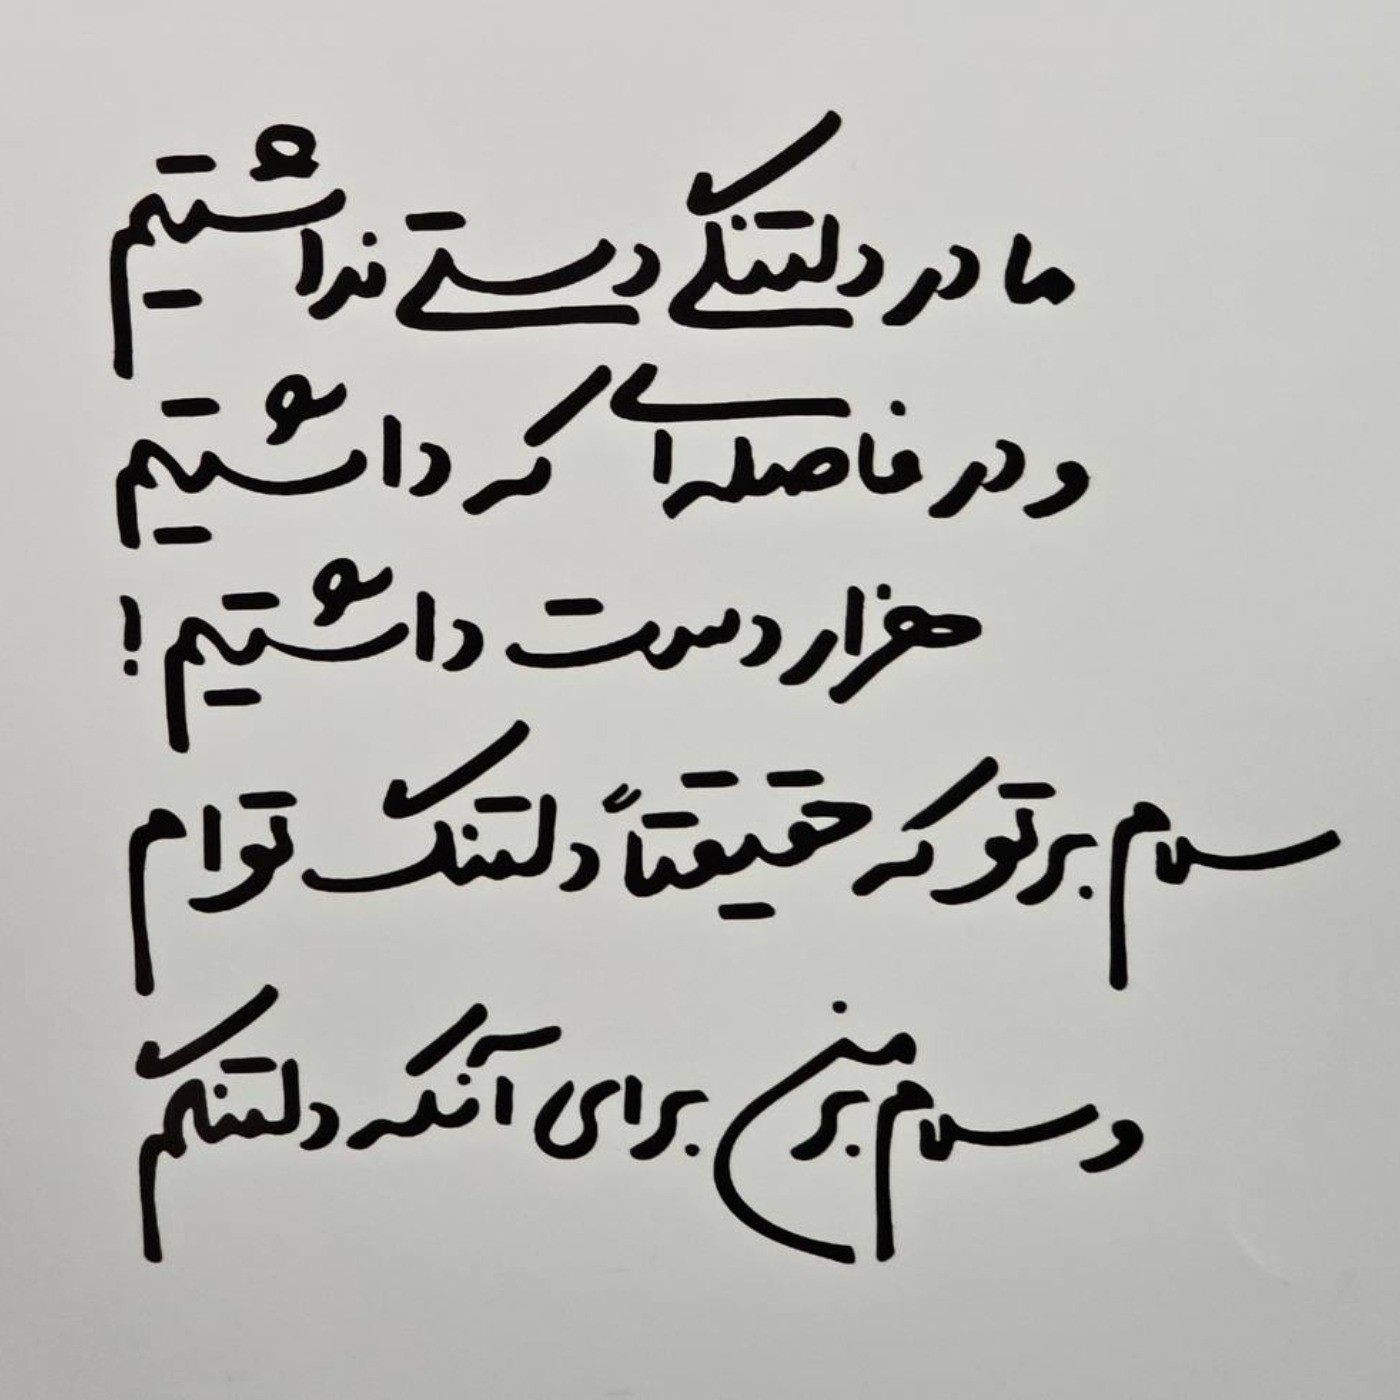 ما در دلتنگی دستی نداشتیم
و در فاصله‌ای که داشتیم
هزار دست داشتیم!
سلام بر تو که حقیقتاً دلتنگ توام
و سلام بر من برای آنکه دلتنگم